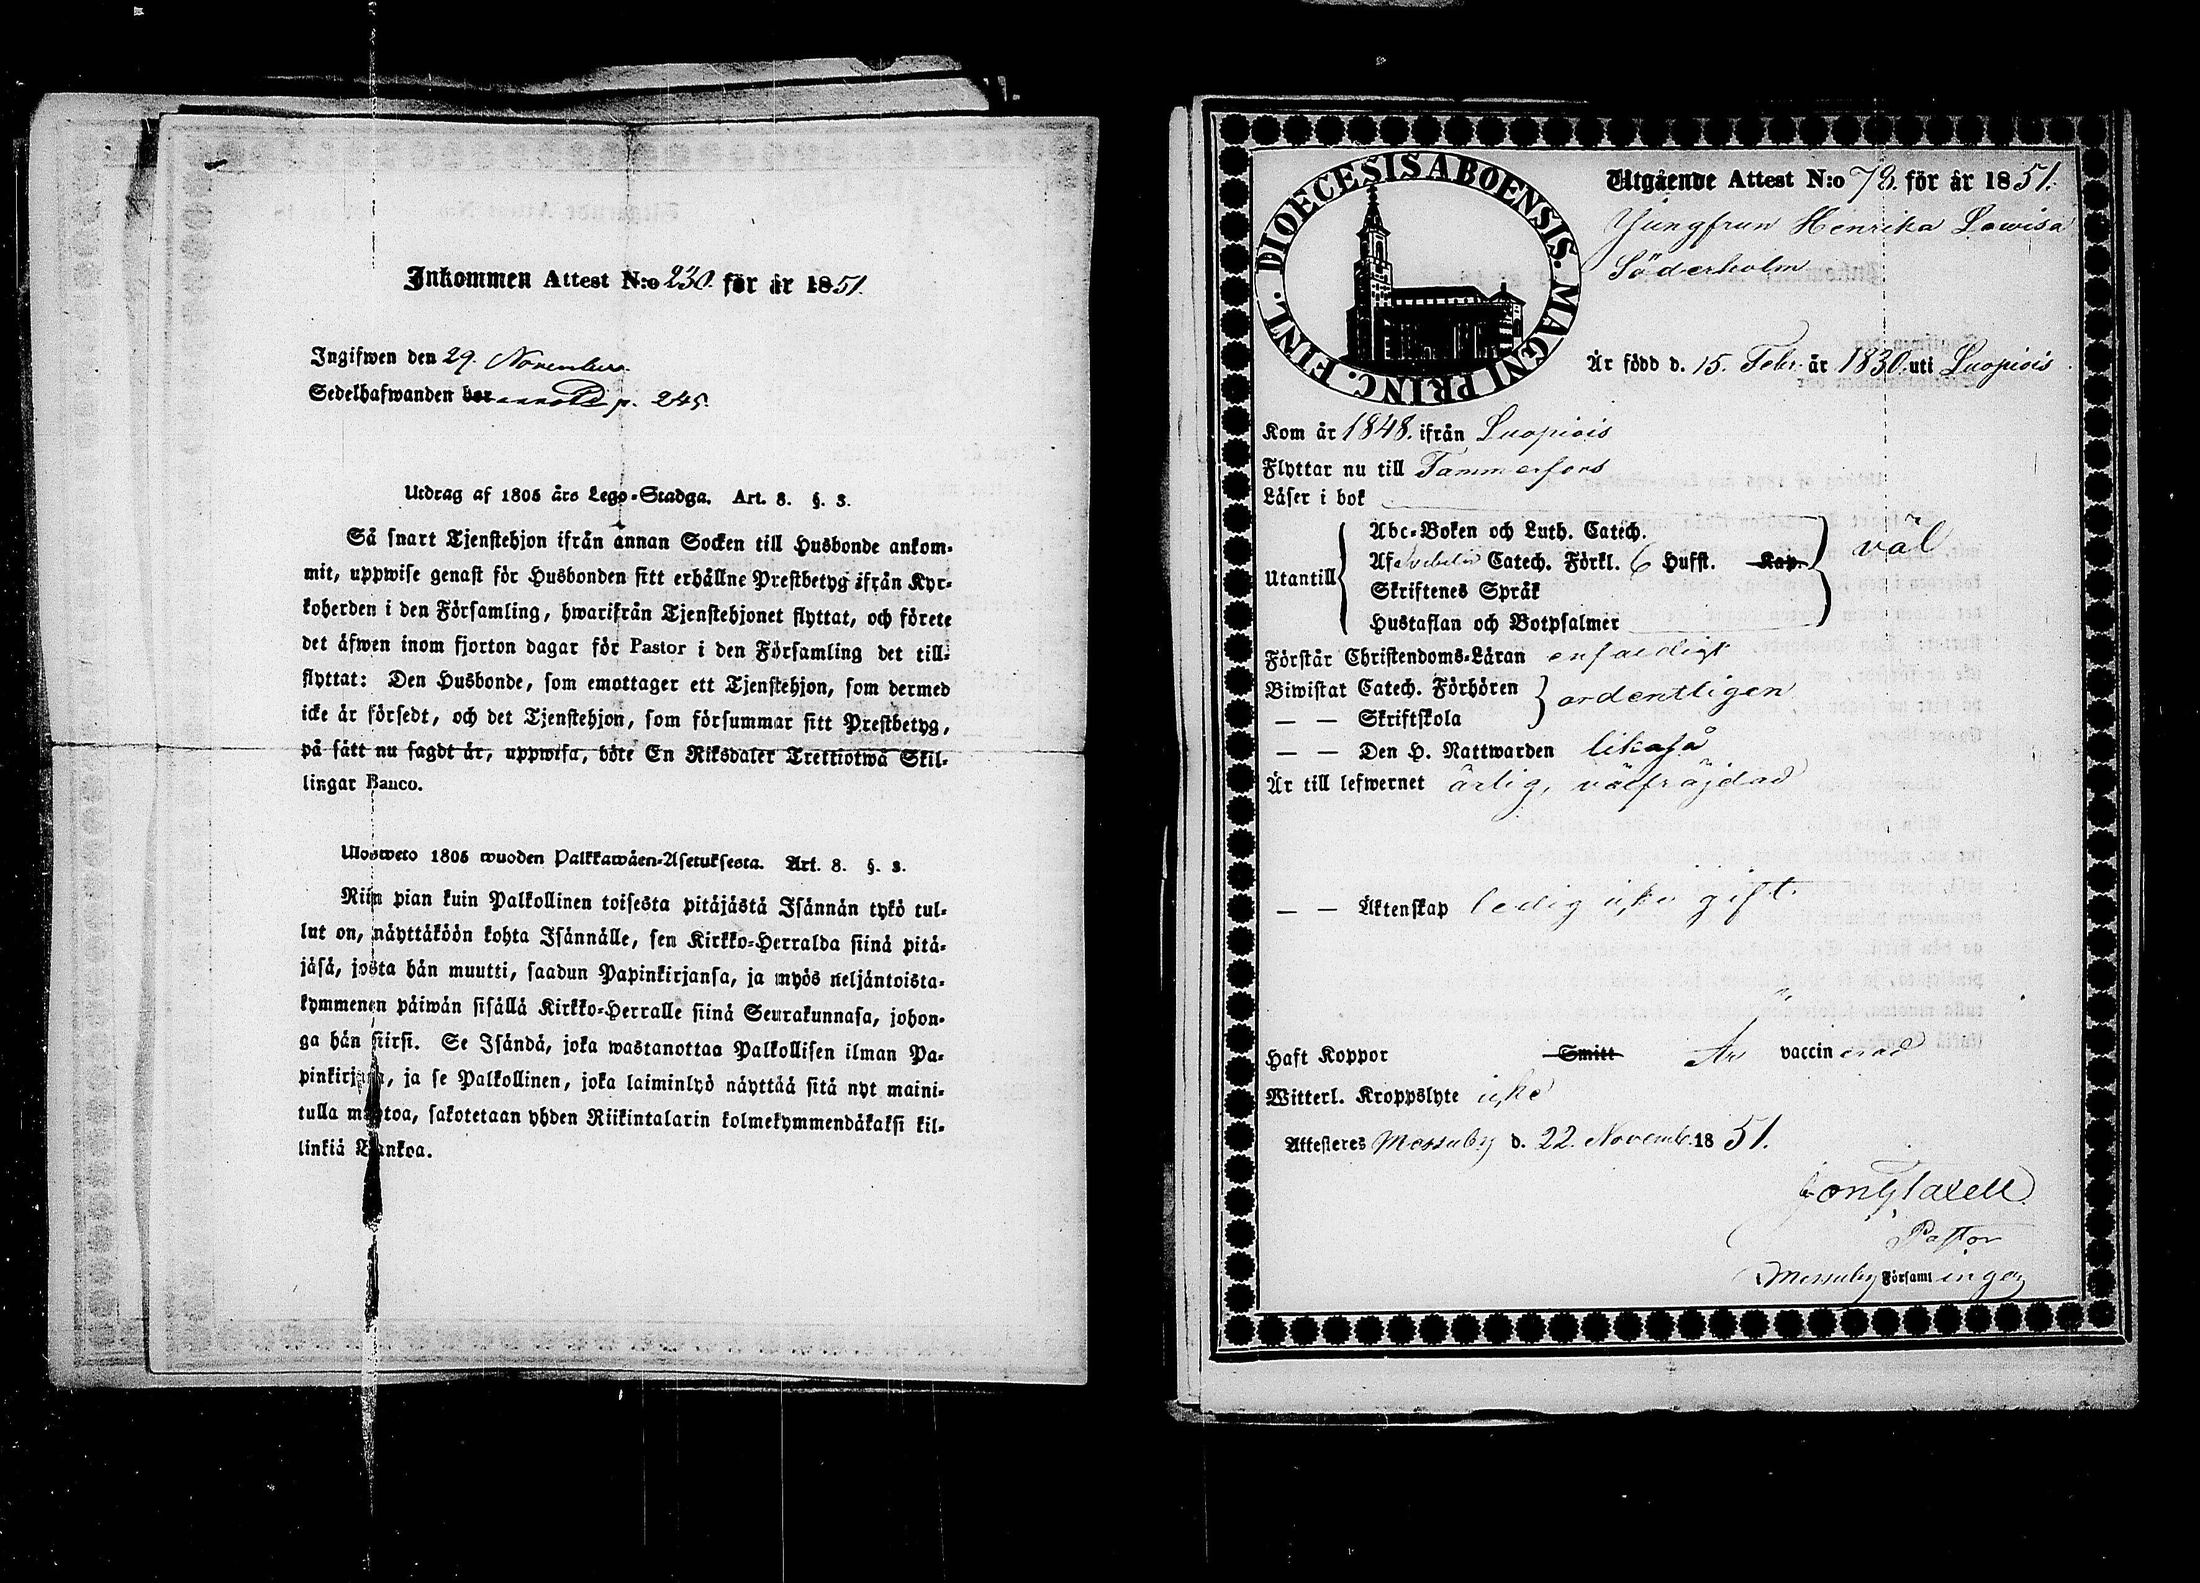 Inkommen Attest N:o 230. för år 1851.
Ingifwen den 29. November
Sedelhafwanden bor annotd p. 245.
Utdrag af 1805 års Lego-Stadga. Art. 8. §. 3.
Så snart Tjenstehjon ifrån annan Socken till Husbonde ankom-
mit, uppwise genast för Husbonden sitt erhållne Prestbetyg ifrån Kyr-
koherden i den Församling, hwarifrån Tjenstehjonet flyttat, och förete
det äfwen inom fjorton dagar för Pastor i den Församling det till-
flyttat: Den Husbonde, som emottager ett Tjenstehjon, som dermed
icke är försedt, och det Tjenstehjon, som försummar sitt Prestbetyg,
på sätt nu sagdt är, uppwisa, böte En Riksdaler Trettiotwå Skil-
lingar Banco.
Ulosweto 1805 wuoden Palkkawäen-Asetuksesta. Art. 8. §. 3.
Niin pian kuin Palkollinen toisesta pitäjästä Isännän tykö tul-
lut on, näyttäköön kohta Isännälle, sen Kirkko-Herralda siinä pitä-
jäsä, josta hän muutti, saadun Papinkirjansa, ja myös neljäntoista-
kymmenen päiwän sisällä Kirkko-Herralle siinä Seurakunnasa, johon-
ga hän siirsi. Se Isändä, joka wastanottaa Palkollisen ilman Pa-
pinkirjata, ja se Palkollinen, joka laiminlyö näyttää sitä nyt maini-
tulla muotoa, sakotetaan yhden Riikintalarin kolmekymmendäkaksi kil-
linkiä Bankoa.
DIOECESIS ABOENSIS. MAGNI PRINC. FINL.
Utgående Attest N:o 78. för år 1851.
Jungfrun Henrika Lowisa
Söderholm
Är född d. 15. Febr. år 1830. uti Luopiois
Kom år 1848. ifrån Luopiois
Flyttar nu till Tammerfors
Läser i bok
Abc-Boken och Luth. Catech.
Utantill Af Svebelii Catech. Förkl. 6 Hufst. Kap. väl
Skriftenes Språk
Hustaflan och Botpsalmer
Förstår Christendoms-Läran enfaldigt
Biwistat Catech. Förhören ordentligen
— — Skriftskola
— — Den H. Nattwarden likaså
Är till lefwernet ärlig, välfräjdad
— — Äktenskap ledig icke gift
Haft Koppor Smitt Är vaccinerad
Witterl. Kroppslyte icke
Attesteres Messuby d. 22. Novemb. 1851.
Pastor
Messuby Församlingen